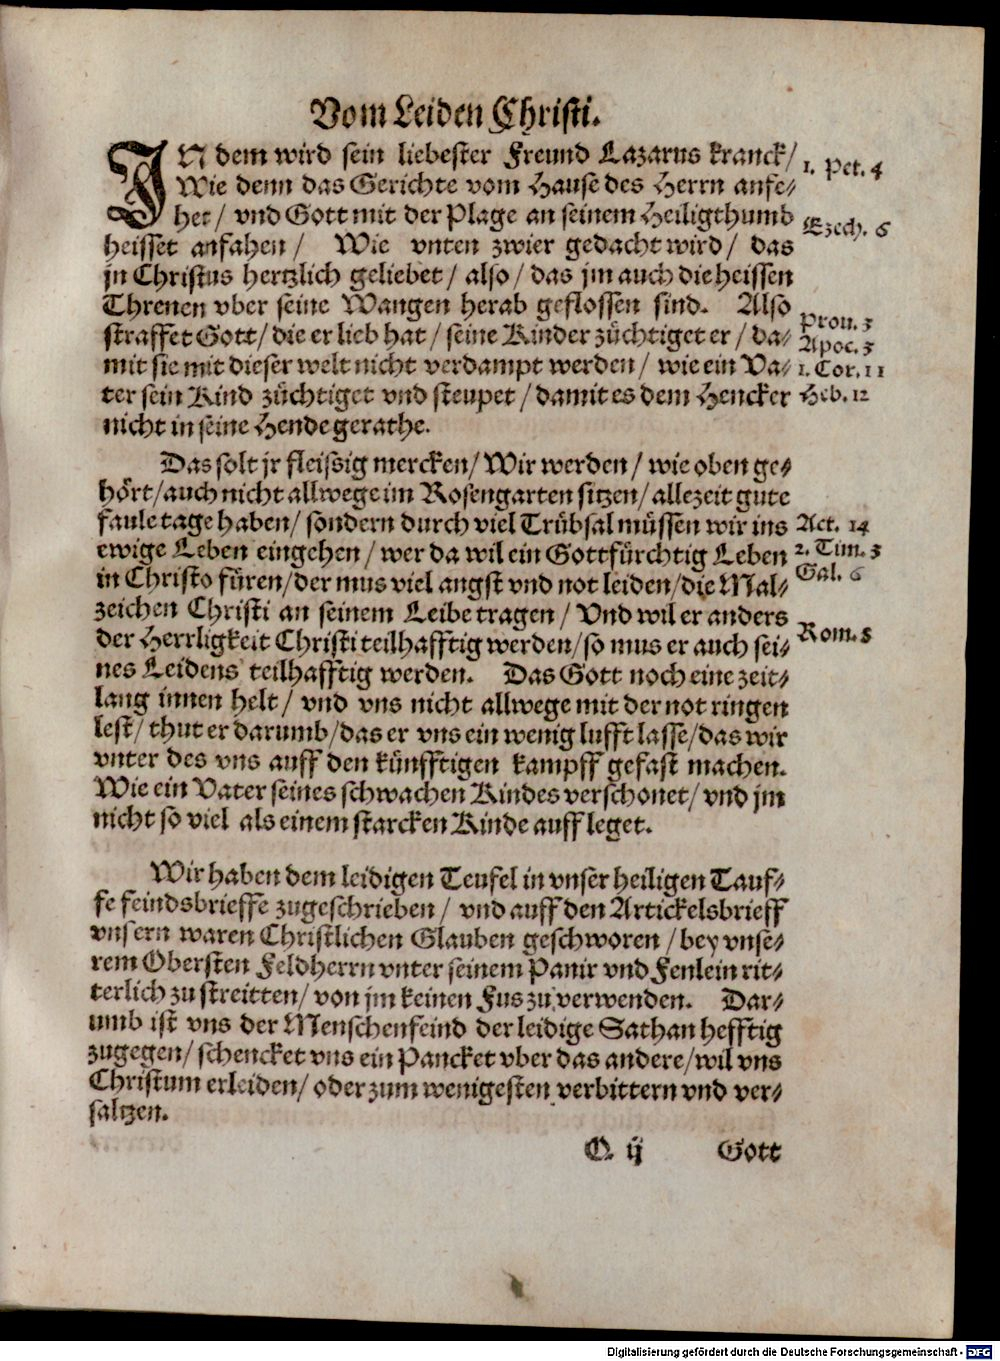 Vom Leiden Christi.
IN dem wird sein liebester Freund Lazarus kranck/
1. Pet. 4
Wie denn das Gerichte vom Hause des Herrn anfe-
het/ vnd Gott mit der Plage an seinem Heiligthumb
Ezech. 6
heisset anfahen/ Wie vnten zwier gedacht wird/ das
jn Christus hertzlich geliebet/ also/ das jm auch die heissen
Threnen vber seine Wangen herab geflossen sind. Also
Prou. 3
straffet Gott/ die er lieb hat/ seine Kinder züchtiget er/ da-
Apoc. 3
mit sie mit dieser welt nicht verdampt werden/ wie ein Va-
1. Cor. 11
ter sein Kind züchtiget vnd steupet/ damit es dem Hencker
Heb. 12
nicht in seine Hende gerathe.
Das solt jr fleissig mercken/ Wir werden/ wie oben ge-
hört/ auch nicht allwege im Rosengarten sitzen/ allezeit gute
faule tage haben/ sondern durch viel Trübsal müssen wir ins
Act. 14
ewige Leben eingehen/ wer da wil ein Gottfürchtig Leben
2. Tim. 3
in Christo füren/ der mus viel angst vnd not leiden/ die Mal-
Gal. 6
zeichen Christi an seinem Leibe tragen/ Vnd wil er anders
der Herrligkeit Christi teilhafftig werden/ so mus er auch sei-
Rom. 8
nes Leidens teilhafftig werden. Das Gott noch eine zeit-
lang innen helt/ vnd vns nicht allwege mit der not ringen
lest/ thut er darumb/ das er vns ein wenig lufft lasse/ das wir
vnter des vns auff den künfftigen kampff gefast machen.
Wie ein Vater seines schwachen Kindes verschonet/ vnd jm
nicht so viel als einem starcken Kinde auff leget.
Wir haben dem leidigen Teufel in vnser heiligen Tauf-
fe feindsbrieffe zugeschrieben/ vnd auff den Artickelsbrieff
vnsern waren Christlichen Glauben geschworen/ bey vnse-
rem Obersten Feldherrn vnter seinem Panir vnd Fenlein rit-
terlich zu streitten/ von jm keinen Fus zu verwenden. Dar-
umb ist vns der Menschenfeind der leidige Sathan hefftig
zugegen/ schencket vns ein Pancket vber das andere/ wil vns
Christum erleiden/ oder zum wenigesten verbittern vnd ver-
saltzen.
O ij Gott
Digitalisierung gefördert durch die Deutsche Forschungsgemeinschaft - DFG